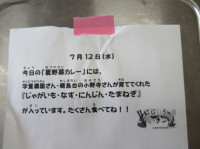 7月12日(水)
今日の「夏野菜カレー」には、
学童農園さん・鹿島台の小野寺さんが育ててくれた
『じゃがいも・なす・にんじん・たまねぎ』
が入っています。たくさん食べてね！！